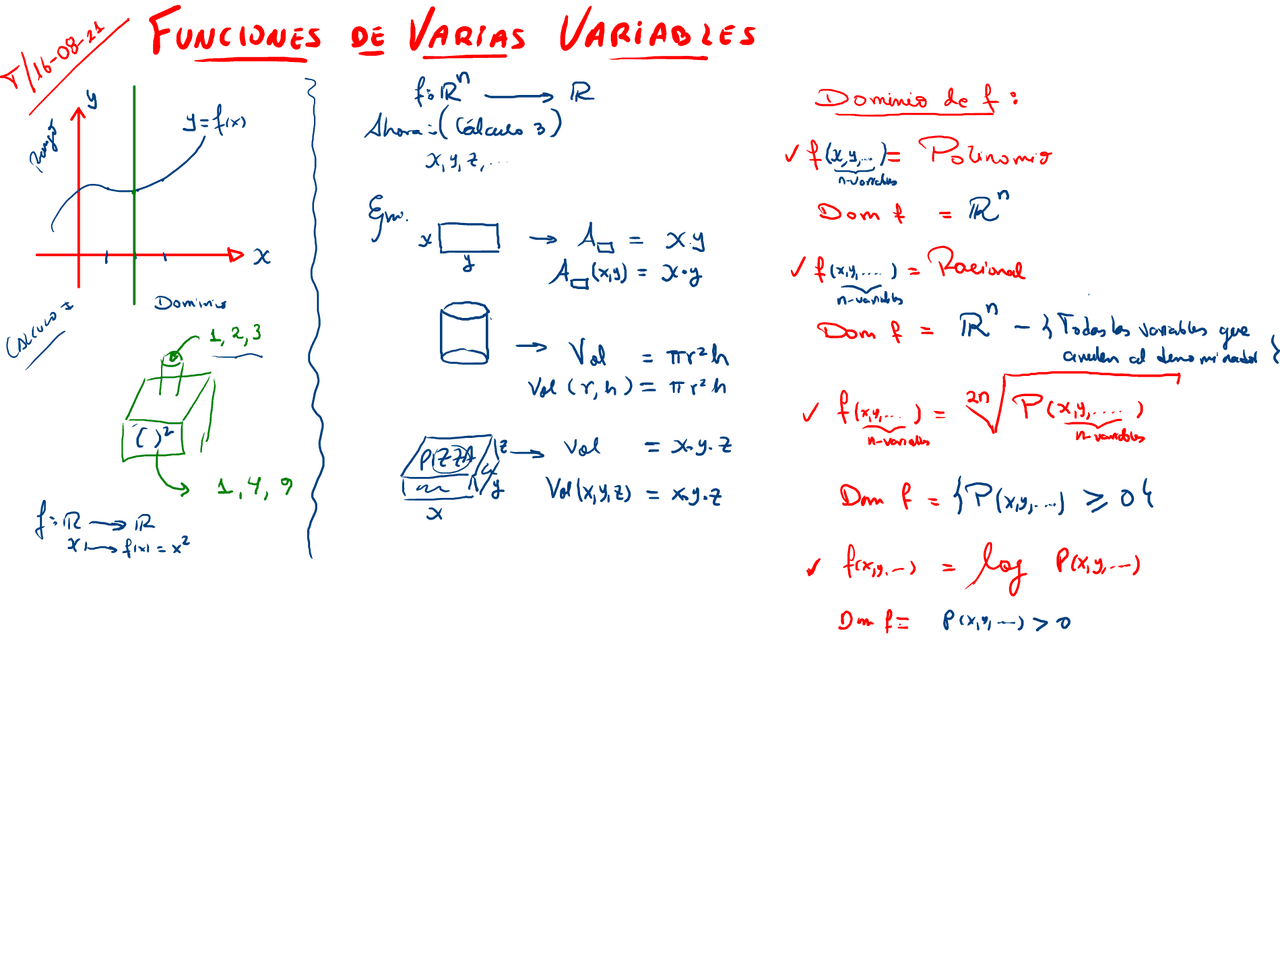 T/16-08-21
FUNCIONES DE VARIAS VARIABLES
y
Rango
y=f(x)
x
Dominio
CALCULO I
1, 2, 3
( )²
1, 4, 9
f: ℝ → ℝ
x ↦ f(x) = x²
f: ℝⁿ → ℝ
Ahora: (Cálculo 3)
x, y, z, ...
Ejm.
x
y
→ A▭ = x·y
A▭(x,y) = x·y
→ Vol = πr²h
Vol (r, h) = πr²h
PIZZA
z
y
x
→ Vol = x·y·z
Vol(x,y,z) = x·y·z
Dominio de f:
✓ f(x,y,...) = Polinomio
n-variables
Dom f = ℝⁿ
✓ f(x,y,....) = Racional
n-variables
Dom f = ℝⁿ - { Todas las variables que
anulen al denominador }
✓ f(x,y,...) = ²ⁿ√P(x,y,....)
n-variables
n-variables
Dom f = {P(x,y,...) ≥ 0}
✓ f(x,y,...) = log P(x,y,...)
Dom f = P(x,y,...) > 0